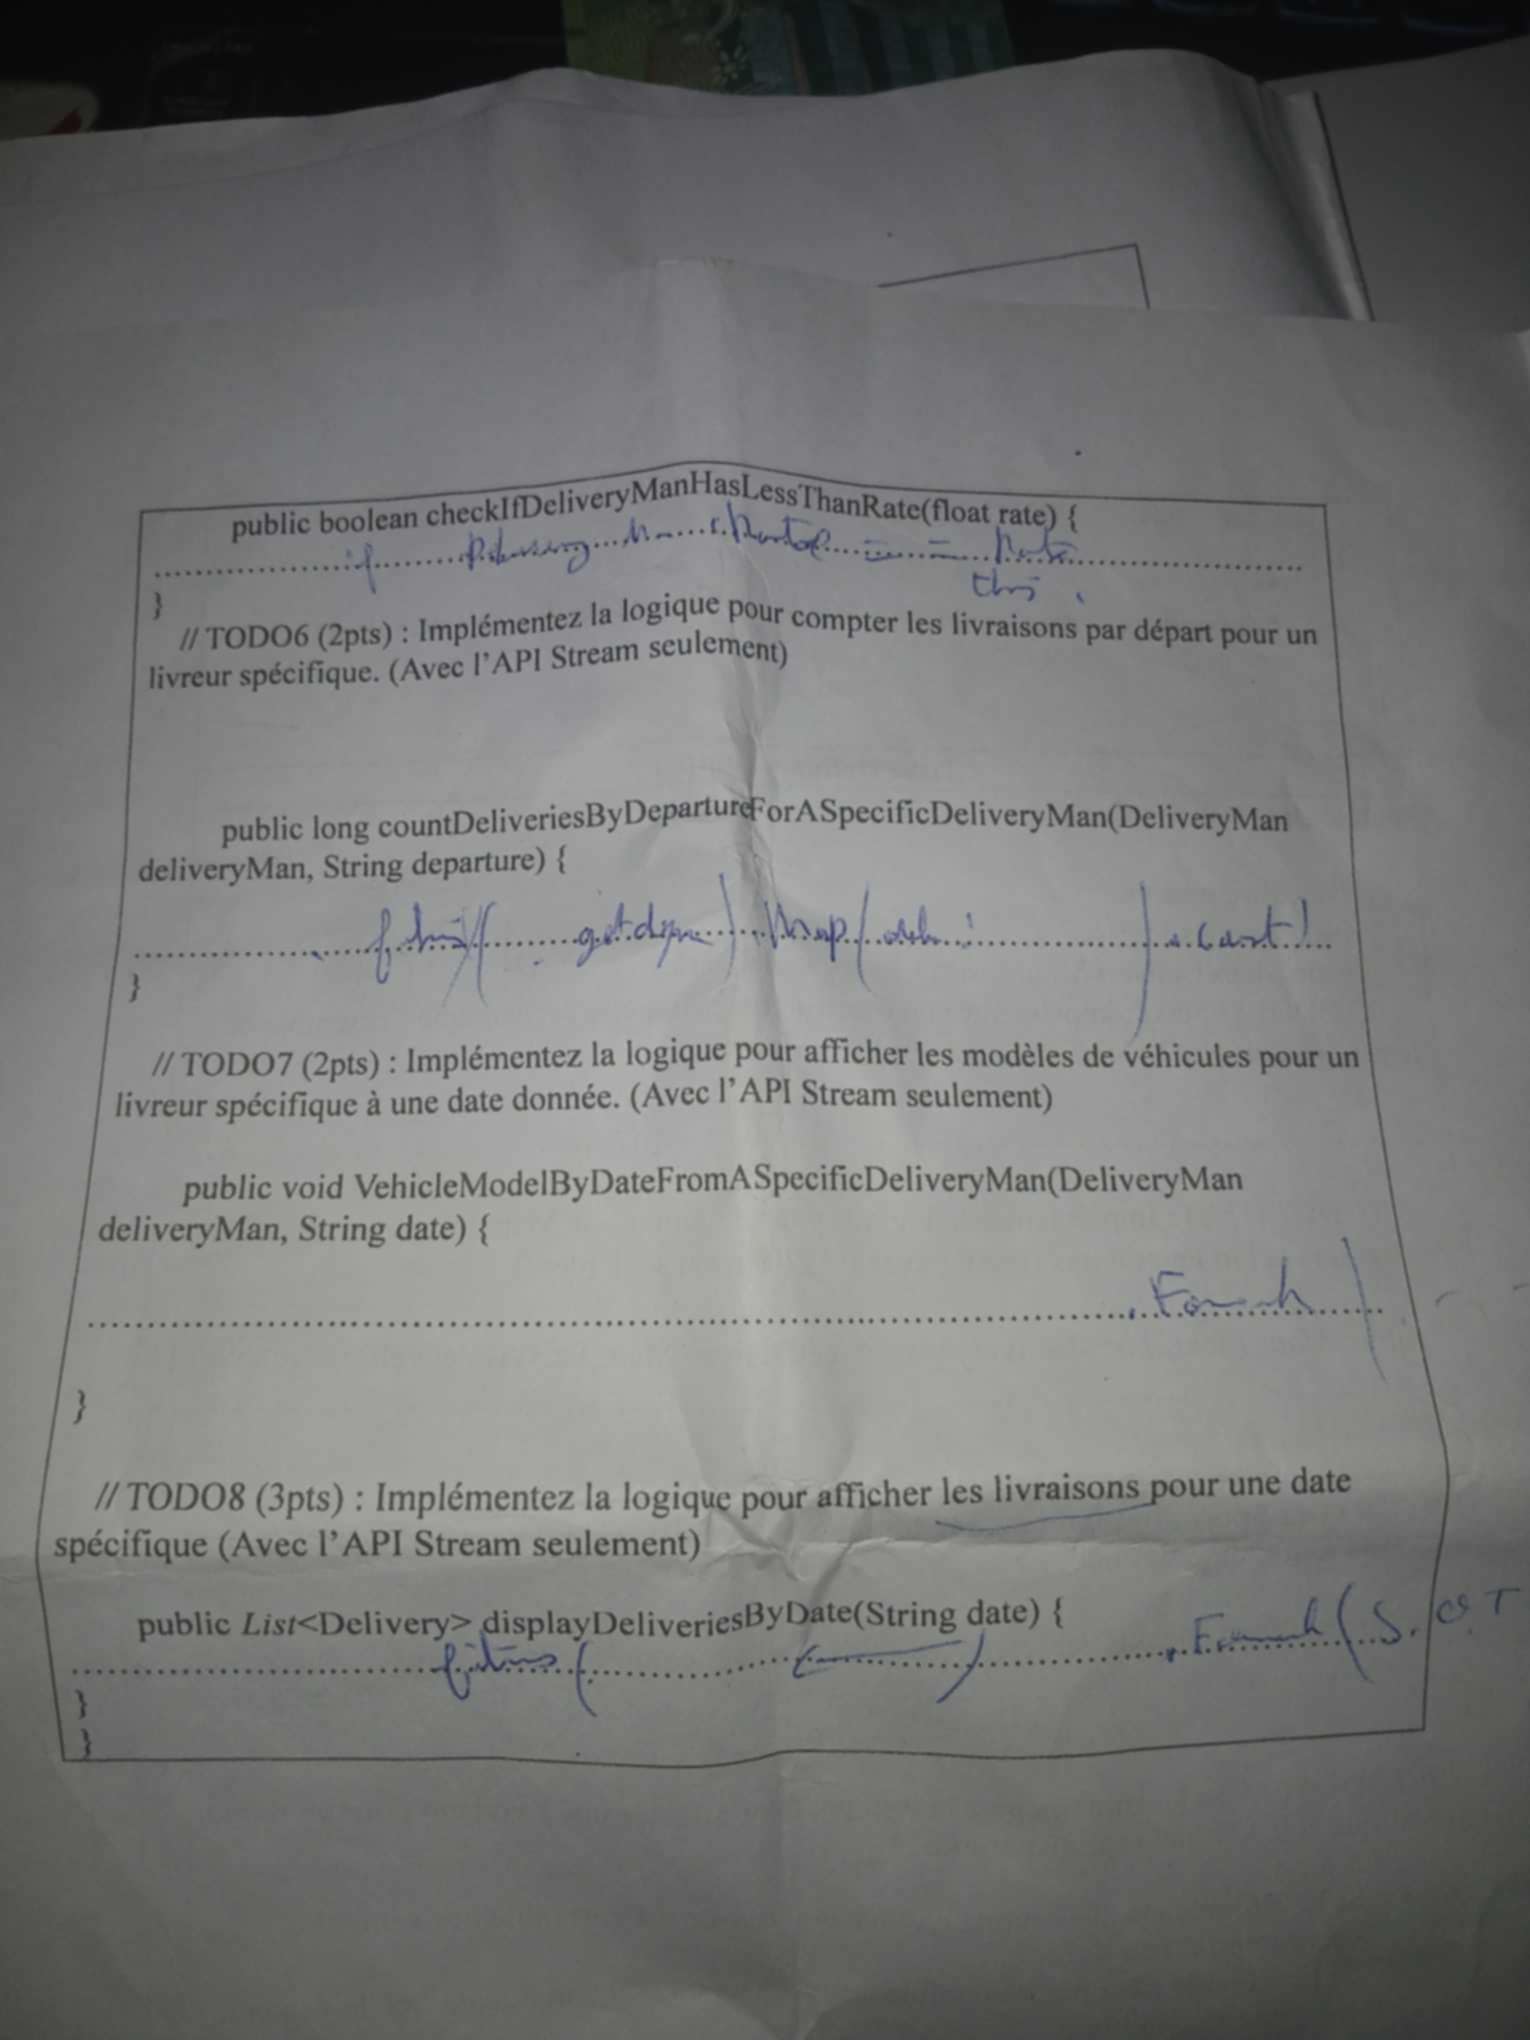 public boolean checkIfDeliveryManHasLessThanRate(float rate) {
if
this.
}
// TODO6 (2pts) : Implémentez la logique pour compter les livraisons par départ pour un
livreur spécifique. (Avec l'API Stream seulement)
public long countDeliveriesByDepartureForASpecificDeliveryMan(DeliveryMan
deliveryMan, String departure) {
Map(
}
// TODO7 (2pts) : Implémentez la logique pour afficher les modèles de véhicules pour un
livreur spécifique à une date donnée. (Avec l'API Stream seulement)
public void VehicleModelByDateFromASpecificDeliveryMan(DeliveryMan
deliveryMan, String date) {
}
// TODO8 (3pts) : Implémentez la logique pour afficher les livraisons pour une date
spécifique (Avec l'API Stream seulement)
public List<Delivery> displayDeliveriesByDate(String date) {
}
}